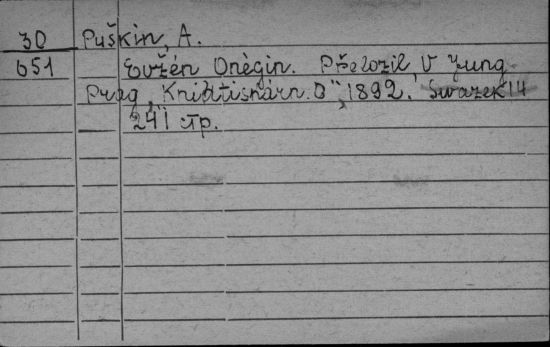 30 Puškin, A.
651 Evžén Onègin. Přeložil V Jung
Prag, "Knihtiskárn. O", 1892. Svazek 14
241 стр.